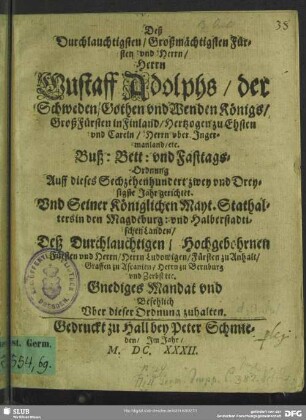 35
Deß
Durchlauchtigsten / Großmächtigsten Für-
sten vnd Herrn /
Herrn
Gustaff Adolphs / der
Schweden / Gothen vnd Wenden Königs /
Groß Fürsten in Finland / Hertzogen zu Ehsten
vnd Careln / Herrn vber Inger-
manland / etc.
Buß: Bett: vnd Fasttags-
Ordnung
Auff dieses Sechzehenhundert zwey vnd Drey-
sigste Jahr gerichtet.
Vnd Seiner Königlichen Mayt. Stathal-
ters in den Magdeburg: vnd Halberstadti-
schen Landen /
Deß Durchlauchtigen / Hochgebohrnen
Fürsten vnd Herrn / Herrn Ludowigen / Fürsten zu Anhalt /
Graffen zu Ascanien / Herrn zu Bernburg
vnd Zerbst etc.
Gnediges Mandat vnd
Befehlich
Vber dieser Ordnung zuhalten.
Gedruckt zu Hall bey Peter Schmie-
den / Im Jahr /
M. DC. XXXII.
DRESDEN
Hist. Germ.
554, 6g.
SLUB
DFG